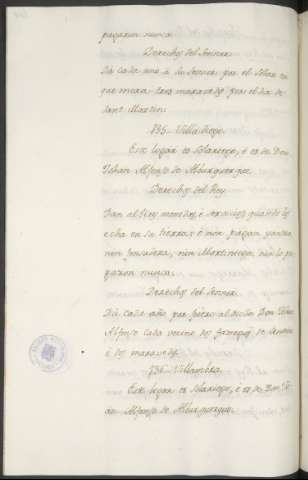 pagaron nunca.
Derechos del Sennor
Dá cada uno à su Sennor por el Solar en
que mora tres maravedis por el dia de
Sant Martin.
735 - Villa
Este lugar es Solariego, é es de Don
Johan Alfonso de Alburquerque.
Derechos del Rey
Dan al Rey monedas, é servicios quando los
echa en su tierra: é non pagan yantar
nen fonsadera, nin Martiniega, nin lo pa-
garon nunca.
Derechos del Sennor.
Dá cada año por fuero al dicho Don Johan
Alfonso cada vecino dos fanegas de
é dos maravedis.
736 - Villamera
Este lugar es solariego, é es de Don Jo-
an Alfonso de Alburquerque.